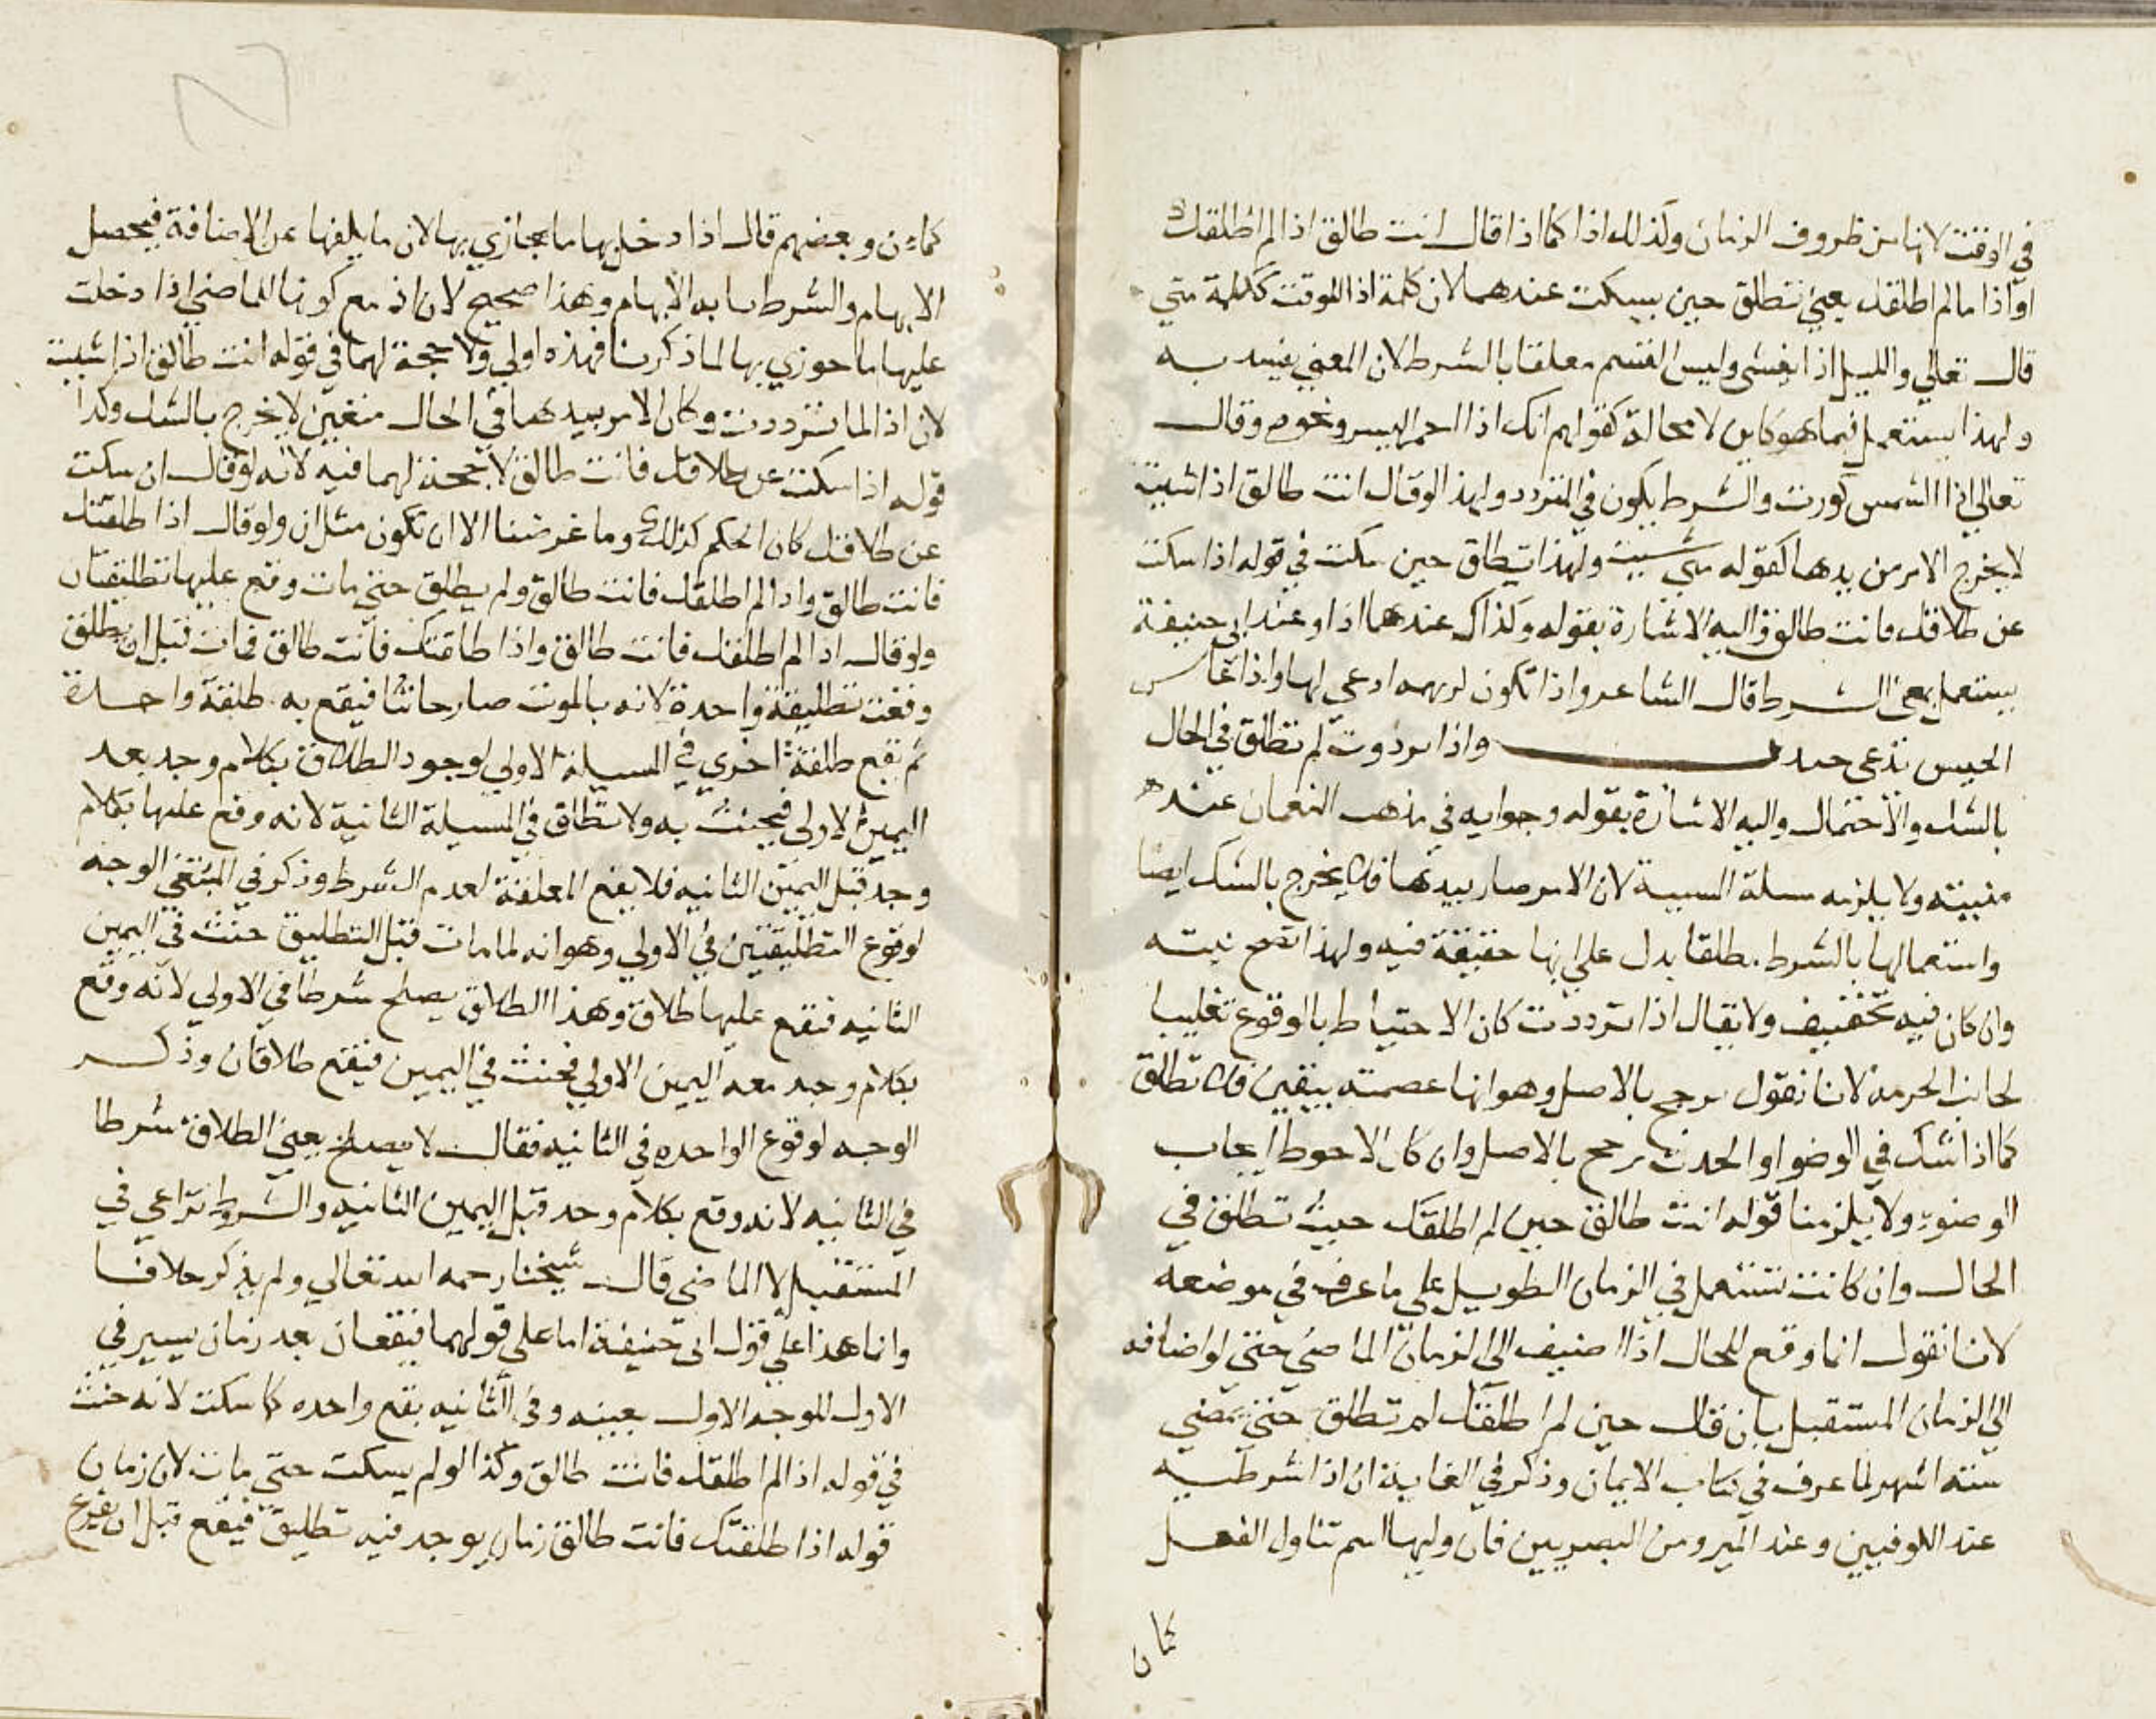 في الوقت لانها من ظروف الزمان وكذلك اذا كما اذا قال انت طالق اذا لم اطلقك
او اذا ما لم اطلقك يعني تطلق حين يسكت عندهما لان كلمة اذا للوقت ككلمة متي
قال تعالي والليل اذا يغشي وليس القسم معلقا بالشرط لان المعني يفسد به
ولهذا يستعمل فيما هو كاين لا محالة كقولهم انك اذا احمر البسر ونحوه وقال
تعالي اذا الشمس كورت والشرط يكون في المتردد ولهذا لو قال انت طالق اذا شيت
لا يخرج الامر من يدها كقوله متي شيت ولهذا تطلق حين سكت في قوله اذا سكت
عن طلاقك فانت طالق واليه الاشارة بقوله وكذاك عندهما اذا وعند ابي حنيفة
يستعمل بمعني الشرط قال الشاعر واذا تكون كريهه ادعي لها واذا يحاس
الحيس تدعى جندب واذا ترددت لم تطلق في الحال
بالشك والاحتمال واليه الاشارة بقوله وجوابه في مذهب النعمان عنده
منيته ولا يلزمه مسلة المسية لان الامر صار بيدها فلا يخرج بالشك ايضا
واستعمالها بالشرط مطلقا يدل علي انها حقيقة فيه ولهذا تصح نيته
وان كان فيه تخفيف ولا يقال اذا ترددت كان الاحتياط بالوقوع تغليبا
لجانب الحرمة لانا نقول يرجح بالاصل وهو انها عصمته بيقين فلا تطلق
كما اذا شك في الوضو او الحدث يرجح بالاصل وان كان الاحوط ايجاب
الوضوء ولا يلزمنا قوله انت طالق حين لم اطلقك حيث تطلق في
الحال وان كانت تستعمل في الزمان الطويل علي ما عرف في موضعه
لانا نقول انما وقع للحال اذا اضيف الي الزمان الماضي حتي لو اضافه
الي الزمان المستقبل بان قال حين لم اطلقك لم تطلق حتي يمضي
ستة اشهر لما عرف في كتاب الايمان وذكر في الغاية ان اذا شرطيه
عند الكوفيين وعند المبرد من البصريين فان وليها اسم تناول الفعل
كما ن
كماءن وبعضهم قال اذا دخل بها ما يجازي بها لان ما يلفها عن الاضافة فيحصل
الابهام والشرط بابه الابهام وهذا صحيح لان اذ مع كونها للماضي اذا دخلت
عليها ما جوزي بها لما ذكرنا فهذه اولي ولا حجة لهما في قوله انت طالق اذا شيت
لان اذا لما ترددت وكان الامر بيدها في الحال متعين لا يخرج بالشك وكذا
قوله اذا سكت عن طلاقك فانت طالق لا حجة لهما فيه لانه لو قال ان سكت
عن طلاقك كان الحكم كذلك وما غرضنا الا ان تكون مثل ان ولو قال اذا طلقتك
فانت طالق واذا لم اطلقك فانت طالق ولم يطلق حتي مات وقع عليها تطليقتان
ولو قال اذا لم اطلقك فانت طالق واذا طلقتك فانت طالق فمات قبل ان يطلق
وقعت تطليقة واحدة لانه بالموت صار حانثا فيقع به طلقة واحدة
ثم تقع طلقة اخري في المسيلة الاولي لوجود الطلاق بكلام وجد بعد
اليمين الاولي فيحنث به ولا تطلق في المسيلة الثانية لانه وقع عليها بكلام
وجد قبل اليمين الثانيه فلا يقع المعلقة لعدم الشرط وذكر في المنتقي الوجه
لوقوع التطليقتين في الاولي وهو انه لما مات قبل التطليق حنث في اليمين
الثانيه فتقع عليها طلاق وهذا الطلاق يصلح شرطا في الاولي لانه وقع
بكلام وجد معه اليمين الاولي فحنث في اليمين فيقع طلاقان وذكر
الوجه لوقوع الواحده في الثانيه فقال لا يصلح يعني الطلاق شرطا
في الثانيه لانه وقع بكلام وجد قبل اليمين الثانيه والشروط تراعي في
المستقبل لا الماضي قال شيخنا رحمه الله تعالي ولم يذكر خلافا
وانما هذا علي قول ابي حنيفة اما علي قولهما فيقعان بعد زمان يسير في
الاول للوجه الاول بعينه وفي الثانيه يقع واحده كما سكت لانه حنث
في قوله اذا لم اطلقك فانت طالق وكذا لو لم يسكت حتي مات لان زمان
قوله اذا طلقتك فانت طالق زمان يوجد فيه تطليق فيقع قبل ان يفرغ